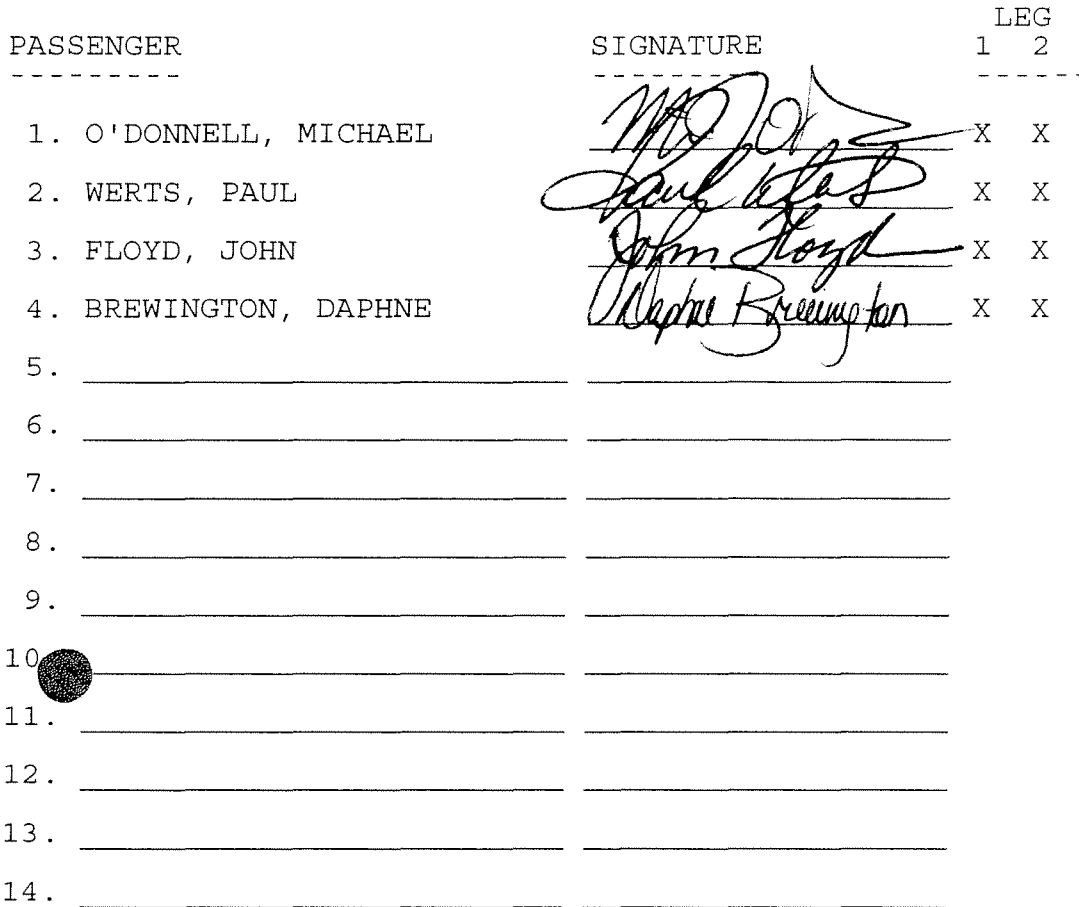 LEG
PASSENGER SIGNATURE 1 2
1. O'DONNELL, MICHAEL X X
2. WERTS, PAUL Paul X X
3. FLOYD, JOHN John Floyd X X
4. BREWINGTON, DAPHNE Daphne Brewington X X
5.
6.
7.
8.
9.
10
11.
12.
13.
14.